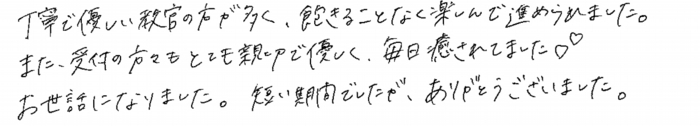 丁寧で優しい教官の方が多く、飽きることなく楽しんで進められました。
また、受付の方々もとても親切で優しく、毎日癒されてました♡♡
お世話になりました。短い期間でしたが、ありがとうございました。